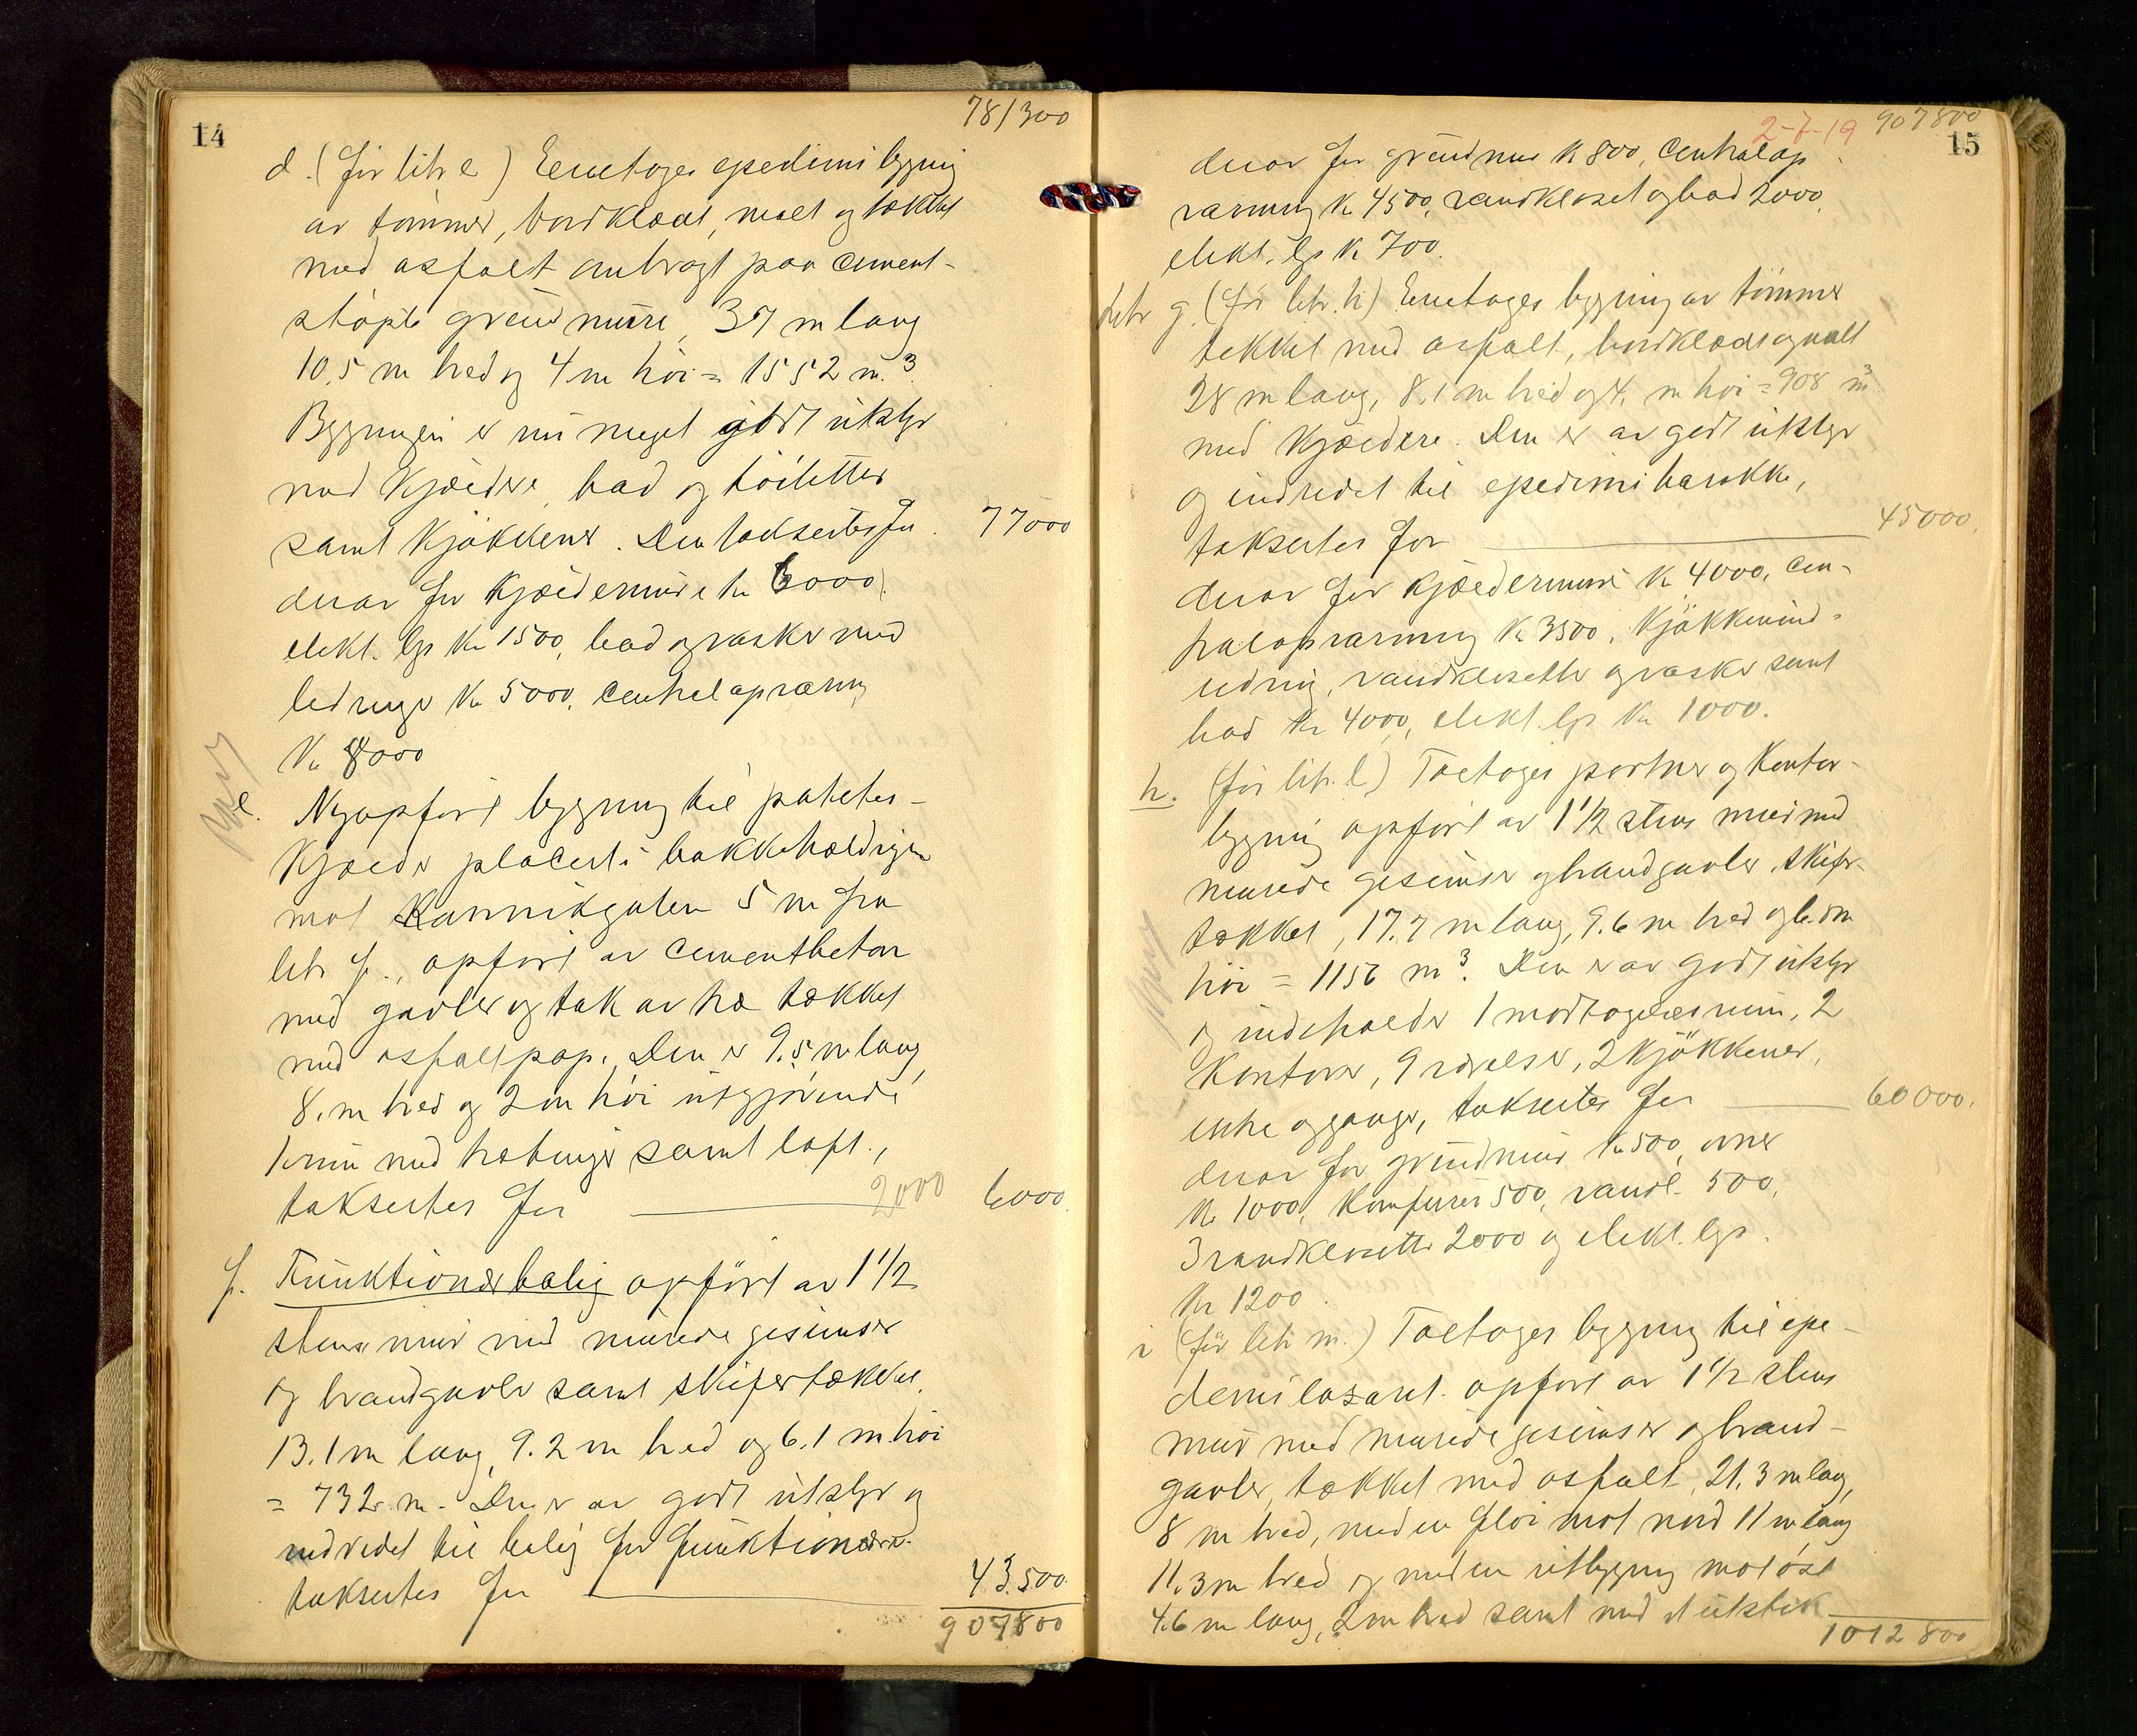 14
78/300
d. (før litr e) Eenetages epedimi bygning
av tømmer, bordklædt, malt og tækket
med asfalt anbragt paa cement-
støpte grundmure, 37 m lang
10,5 m bred og 4 m høi = 1552 m.³
Bygningen er nu meget godt utstyr
med kjælder, bad og toiletter
samt kjøkkener. Den takseres for 77000
derav for kjældermure kr 6000
elekt. lys kr 1500, bad og vasker med
ledninger kr 5000, centralopvarmn
kr 8000
Ny
e. Nyopført bygning til potetes-
kjælder placert i bakkeheldingen
mot Kannikgaten 5 m fra
litr f., opført av cementbeton
med gavler og tak av træ tækket
med asfaltpap. Den er 9.5 m lang,
8. m bred og 2 m høi utgjørende
1 rum med trætrapper samt loft.,
taksertes for 2000 6000.
f. Funktionærbolig opført av 1 1/2
stens mur med murede gesimser
og brandgavler samt skifertækket,
13.1 m lang, 9.2 m bred og 6.1 m høi
= 732 m. Den er av godt utstyr og
indredet til bolig for funktionærer.
taksertes for 43.500
907800
907800
2-7-19
15
derav for grundmur kr 800, centralop
varming kr 4500, vandkloset og bad 2000,
elekt. lys kr 700.
Litr g. (før litr. h) Eenetages bygning av tømmer
tekket med asfalt, bordklædt og malt
28 m lang, 8.1 m bred og 4. m høi = 908 m³
med kjældere. Den er av godt utstyr
og indredet til epedimi barakke,
taksertes for 45000.
derav for kjældermure kr 4000, cen-
tralopvarming kr 3500, kjøkkenind-
redning, vandklosetter og vasker samt
bad kr 4000, elekt. lys kr 1000.
h. (før litr. l) Toetages portner og kontor-
bygning opført av 1 1/2 stens mur med
murede gesimser og brandgavler, skifer-
tækket, 17.7 m lang, 9.6 m bred og 6.8 m
høi = 1156 m³. Den er av godt utstyr
Ny
og indeholder 1 modtagelsesrum, 2
kontorer, 9 værelser, 2 kjøkkener,
entre og gange, taksertes for 60000.
derav for grundmur kr 500, ovner
kr 1000, komfurer 500, vandl. 500,
3 vandklosetter 2000 og elekt. lys.
kr 1200.
i (før litr m.) Toetages bygning til epe-
demi lasaret. opført av 1 1/2 stens
mur med murede gesimser og brand-
gavler, tækket med asfalt, 21.3 m lang,
8 m bred, med en fløi mot nord 11 m lang
11.3 m bred og med en utbygning mot øst
4.6 m lang, 2 m bred samt med et utstik
1012800